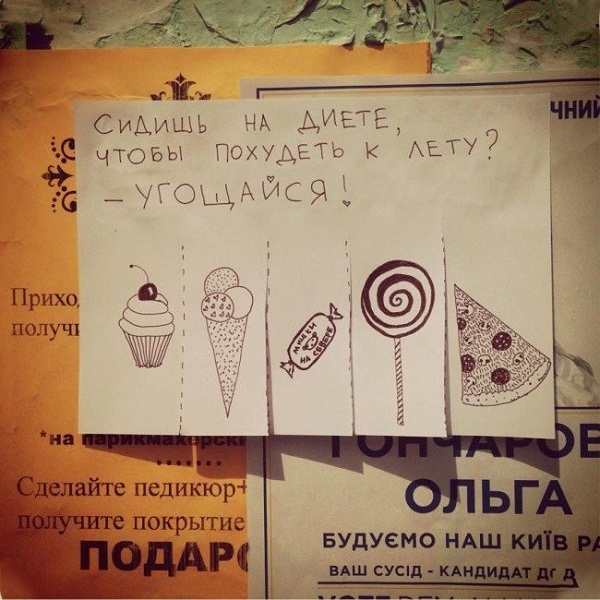 СИДИШЬ НА ДИЕТЕ,
ЧТОБЫ ПОХУДЕТЬ К ЛЕТУ?
– УГОЩАЙСЯ!
МИШКИ
НА СЕВЕРЕ
получи
*на парикмахерски
Сделайте педикюр+
получите покрытие
ПОДАР
ЧНИЙ
ГОНЧАРОВ
ОЛЬГА
БУДУЄМО НАШ КИЇВ РА
ВАШ СУСІД - КАНДИДАТ